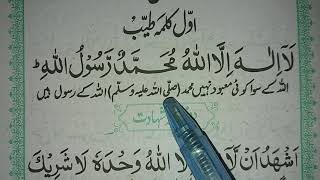 اوّل کلمہ طیّب
لَآ اِلٰهَ اِلَّا اللّٰهُ مُحَمَّدٌ رَّسُوْلُ اللّٰهِ ؕ
اللہ کے سوا کوئی معبود نہیں محمد (صلی اللہ علیہ وسلم) اللہ کے رسول ہیں
شہادت
اَشْهَدُ اَنْ لَّا اللّٰهُ وَحْدَهٗ لَا شَرِيْكَ